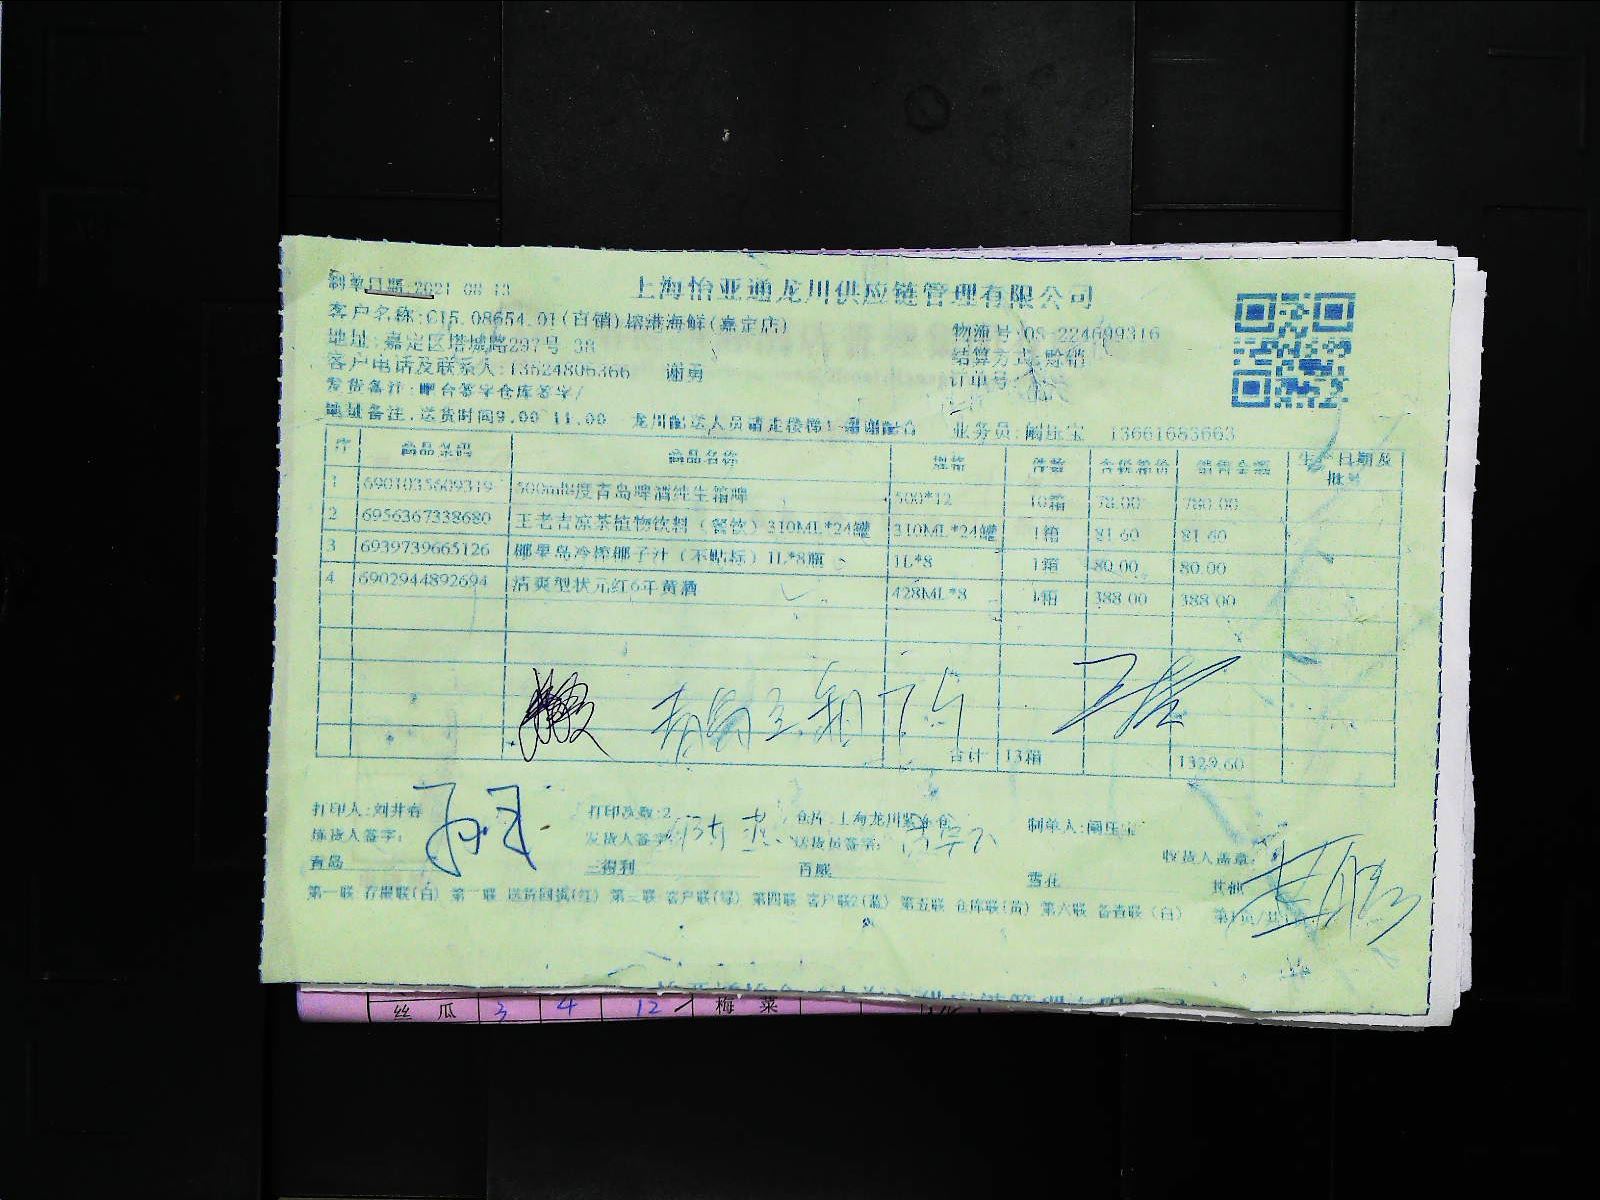 制单日期:2021-08-13
上海怡亚通龙川供应链管理有限公司
客户名称:C15.08654.01(直销)榕港海鲜(嘉定店)
物流号:OS-224699316
地址:嘉定区塔城路297号 3B
结算方式:赊销
客户电话及联系人:13524806366 谢勇
订单号:
发货备注:吧台签字仓库签字/
地址备注:送货时间9.00-11.00 龙川配送人员请走楼梯! 谢谢配合
业务员:阚珏宝 13661683663
序 商品条码 商品名称 规格 件数 含税箱价 销售金额 生产日期及批号
1 6901035609319 500ml8度青岛啤酒纯生箱啤 500*12 10箱 78.00 780.00
2 6956367338680 王老吉凉茶植物饮料(餐饮)310ML*24罐 310ML*24罐 1箱 81.60 81.60
3 6939739665126 椰果岛冷榨椰子汁(不贴标)1L*8瓶 1L*8 1箱 80.00 80.00
4 6902944892694 清爽型状元红6年黄酒 428ML*8 1箱 388.00 388.00
合计 13箱 1329.60
打印人:刘井春 打印次数:2 仓库:上海龙川 制单人:阚珏宝
拣货人签字: 发货人签字: 送货员签字: 收货人盖章:
青岛 三得利 百威 雪花 其他
第一联 存根联(白) 第二联 送货回执(红) 第三联 客户联(绿) 第四联 客户联2(蓝) 第五联 仓库联(黄) 第六联 备查联(白) 第1页/共1页
丝瓜 3 4 12 梅菜